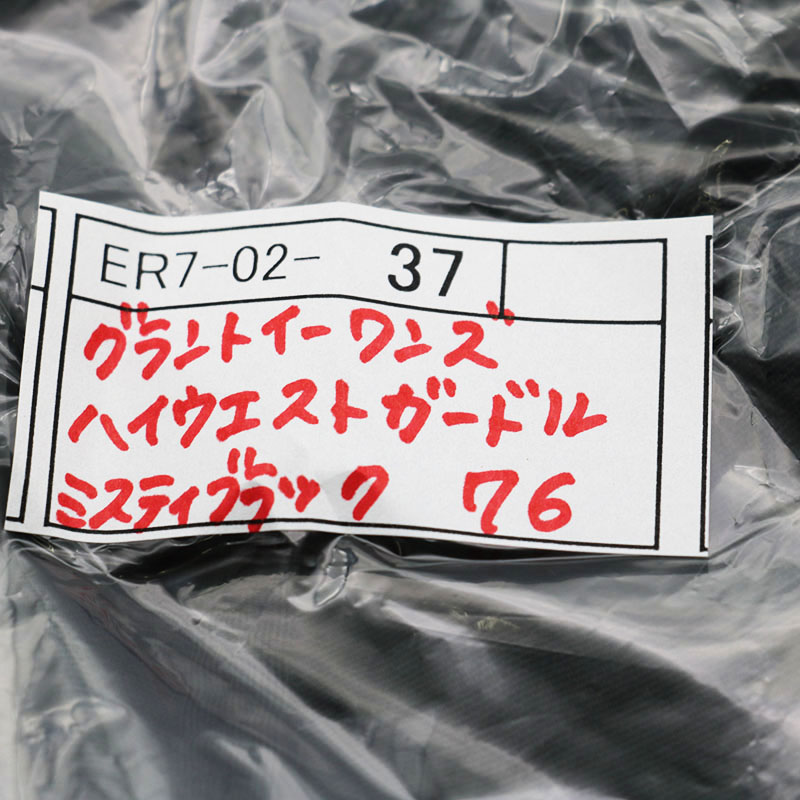 ER7-02- 37
グラントイーワンズ
ハイウエストガードル
ミスティブラック 76